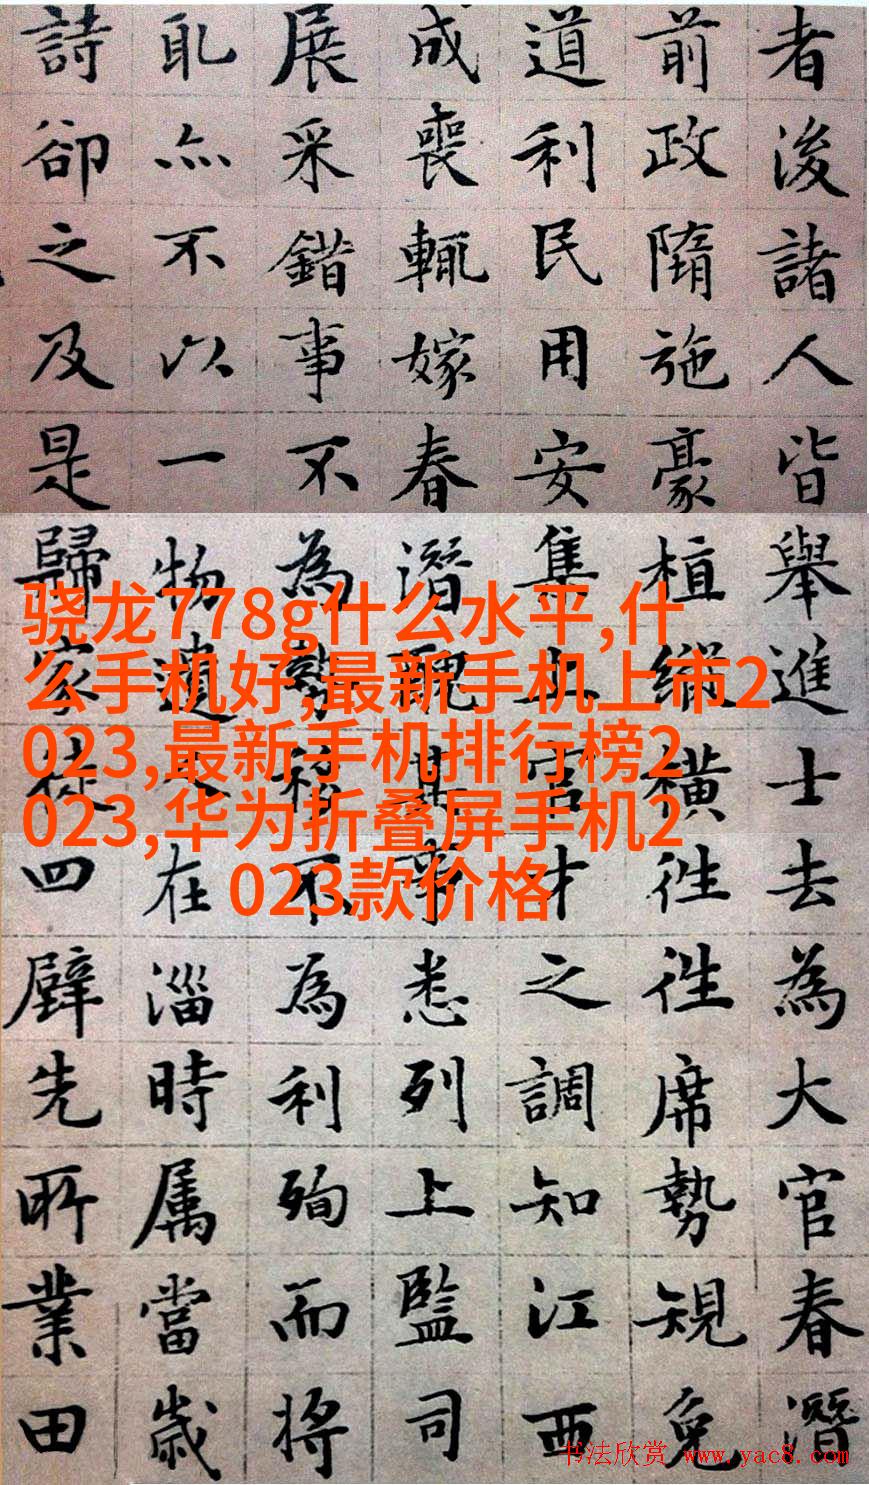 者浚諸人皆舉進士去為大官春潛
前政隋施豪植縱橫往往席勢規免
道利民用安集上官才之調知江西
成喪輒嫁春潛親其事悉列上監司
展采錯事不為勢不為利殉而將
耴亦不以一物遺在淄時属當歲
詩卻之及是歸家徒四壁先所業田
骁龙778g什么水平,什
么手机好,最新手机上市2
023,最新手机排行榜2
023,华为折叠屏手机2
023款价格
书法欣赏 www.yac8.com